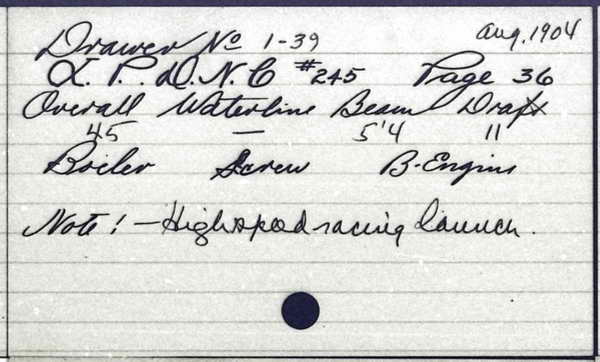 Drawer No 1-39 Aug. 1904
L. P. D. N. C #245 Page 36
Overall Waterline Beam Draft
45 — 5'4 11
Boiler Screw B-Engine
Note! - High speed racing launch.